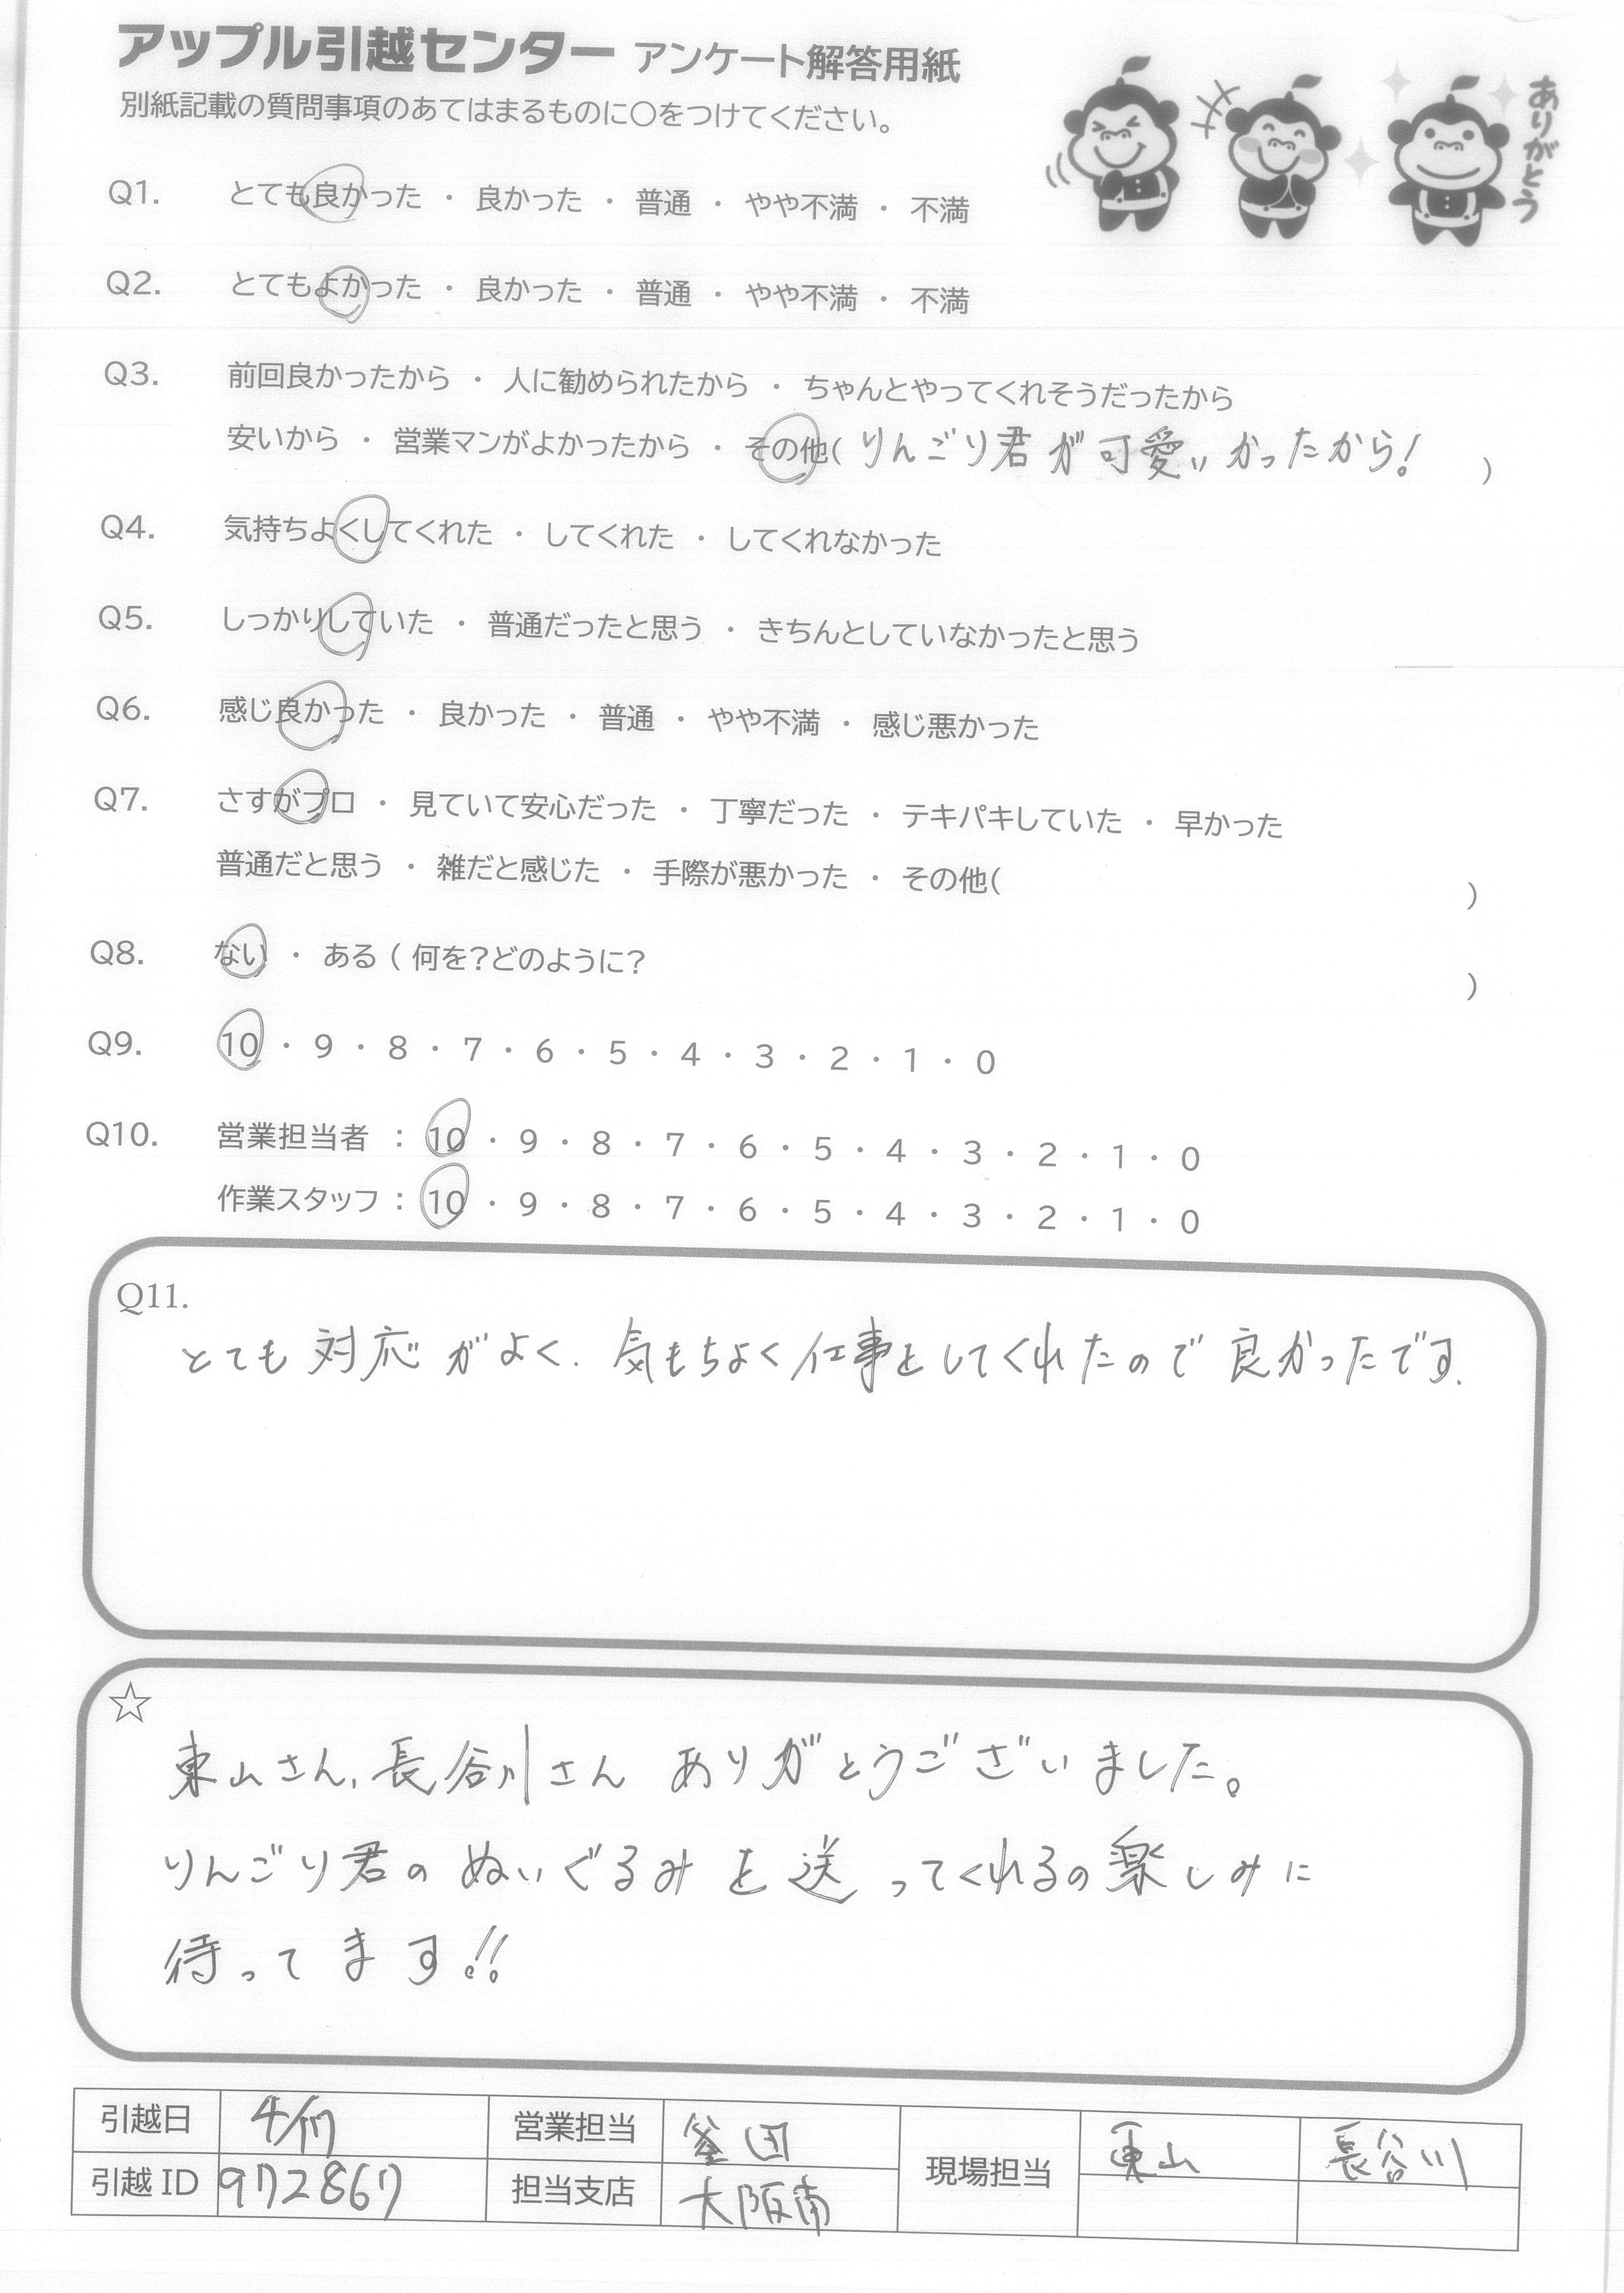 アップル引越センター アンケート解答用紙
別紙記載の質問事項のあてはまるものに○をつけてください。
ありがとう
Q1. とても良かった ・ 良かった ・ 普通 ・ やや不満 ・ 不満
Q2. とてもよかった ・ 良かった ・ 普通 ・ やや不満 ・ 不満
Q3. 前回良かったから ・ 人に勧められたから ・ ちゃんとやってくれそうだったから
安いから ・ 営業マンがよかったから ・ その他( りんごり君が可愛いかったから! )
Q4. 気持ちよくしてくれた ・ してくれた ・ してくれなかった
Q5. しっかりしていた ・ 普通だったと思う ・ きちんとしていなかったと思う
Q6. 感じ良かった ・ 良かった ・ 普通 ・ やや不満 ・ 感じ悪かった
Q7. さすがプロ ・ 見ていて安心だった ・ 丁寧だった ・ テキパキしていた ・ 早かった
普通だと思う ・ 雑だと感じた ・ 手際が悪かった ・ その他( )
Q8. ない ・ ある ( 何を?どのように? )
Q9. 10 ・ 9 ・ 8 ・ 7 ・ 6 ・ 5 ・ 4 ・ 3 ・ 2 ・ 1 ・ 0
Q10. 営業担当者 : 10 ・ 9 ・ 8 ・ 7 ・ 6 ・ 5 ・ 4 ・ 3 ・ 2 ・ 1 ・ 0
作業スタッフ : 10 ・ 9 ・ 8 ・ 7 ・ 6 ・ 5 ・ 4 ・ 3 ・ 2 ・ 1 ・ 0
Q11.
とても対応がよく. 気もちよく仕事をしてくれたので良かったです.
☆
東山さん, 長谷川さん ありがとうございました。
りんごり君の ぬいぐるみを送ってくれるの楽しみに
待ってます!!
引越日 4/17 営業担当 現場担当 東山 長谷川
引越 ID 972867 担当支店 大阪南